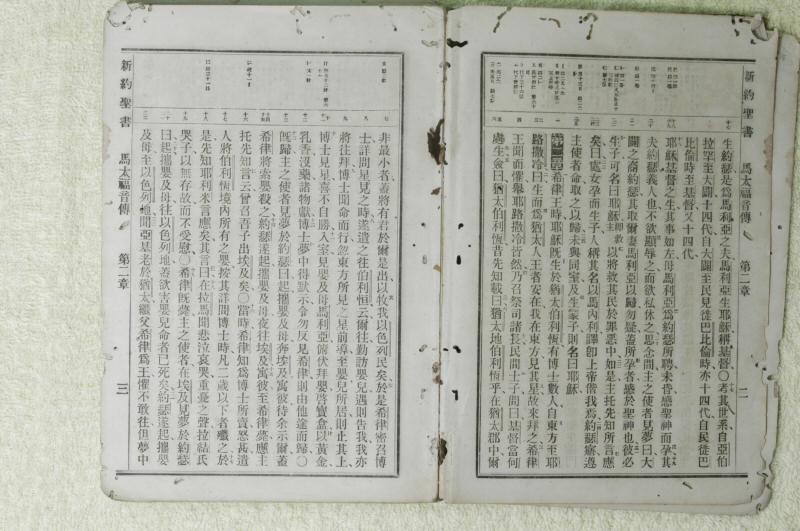 新約聖書 馬太福音傳 第二章 二
生約瑟是爲馬利亞之夫馬利亞生耶穌稱基督○考其世系自亞伯
拉罕至大闢十四代自大闢至民見徙巴比倫時亦十四代自民徙巴
比倫時至基督又十四代
耶穌基督之生其事如左母馬利亞爲約瑟所聘未昏感聖神而孕其
夫約瑟義人也不欲顯辱之而欲私休之思念間主之使者見夢曰大
闢之裔約瑟其取爾妻馬利亞以歸勿疑蓋所孕者感於聖神也彼必
生子可名曰耶穌 以將救其民於罪惡中如是主托先知所言應
矣曰處女孕而生子人稱其名以馬內利譯卽上帝偕我焉約瑟寤遵
主使者命取之以歸未與同室及生冢子則名曰耶穌
第二章 希律王時耶穌旣生於猶太伯利恒有博士數人自東方至耶
路撒冷曰生而爲猶太人王者安在我在東方見其星故來拜之希律
王聞而懼舉耶路撒冷皆然乃召祭司諸長民間士子問曰基督當何
處生僉曰猶太伯利恒昔先知載曰猶太地伯利恒乎在猶太郡中爾
非最小者蓋將有君於爾是出以牧我以色列民矣於是希律密召博
士詳問星見之時遂遣之往伯利恒云爾往勤訪嬰兒遇則告我我亦
將往拜博士聞命而行忽東方所見之星前導至嬰兒所居則止其上
博士見星喜不自勝入室見嬰及母馬利亞俯伏拜嬰啓寶盒以黃金
乳香沒藥諸物獻博士夢中得默示令勿反見希律則由他途而歸○
旣歸主之使者見夢於約瑟曰起攜嬰及母奔埃及寓彼待余示爾蓋
希律將索嬰殺之約瑟遂起攜嬰及母夜往埃及寓彼至希律薨應主
托先知言云曾召吾子出埃及矣○當時希律知爲博士所賣怒甚遣
人將伯利恒境內所有之嬰按其詳問博士時凡二歲以下者殲之於
是先知耶利米言應矣其言曰在拉馬聞悲泣哀哭重憂之聲拉結氏
哭子以無存故而不受慰○希律旣薨主之使者在埃及見夢於約瑟
曰起攜嬰及母往以色列地蓋欲害嬰兒命者已死矣約瑟遂起攜嬰
及母至以色列地聞亞基老於猶太繼父希律爲王懼不敢往但夢中
新約聖書 馬太福音傳 第二章 三